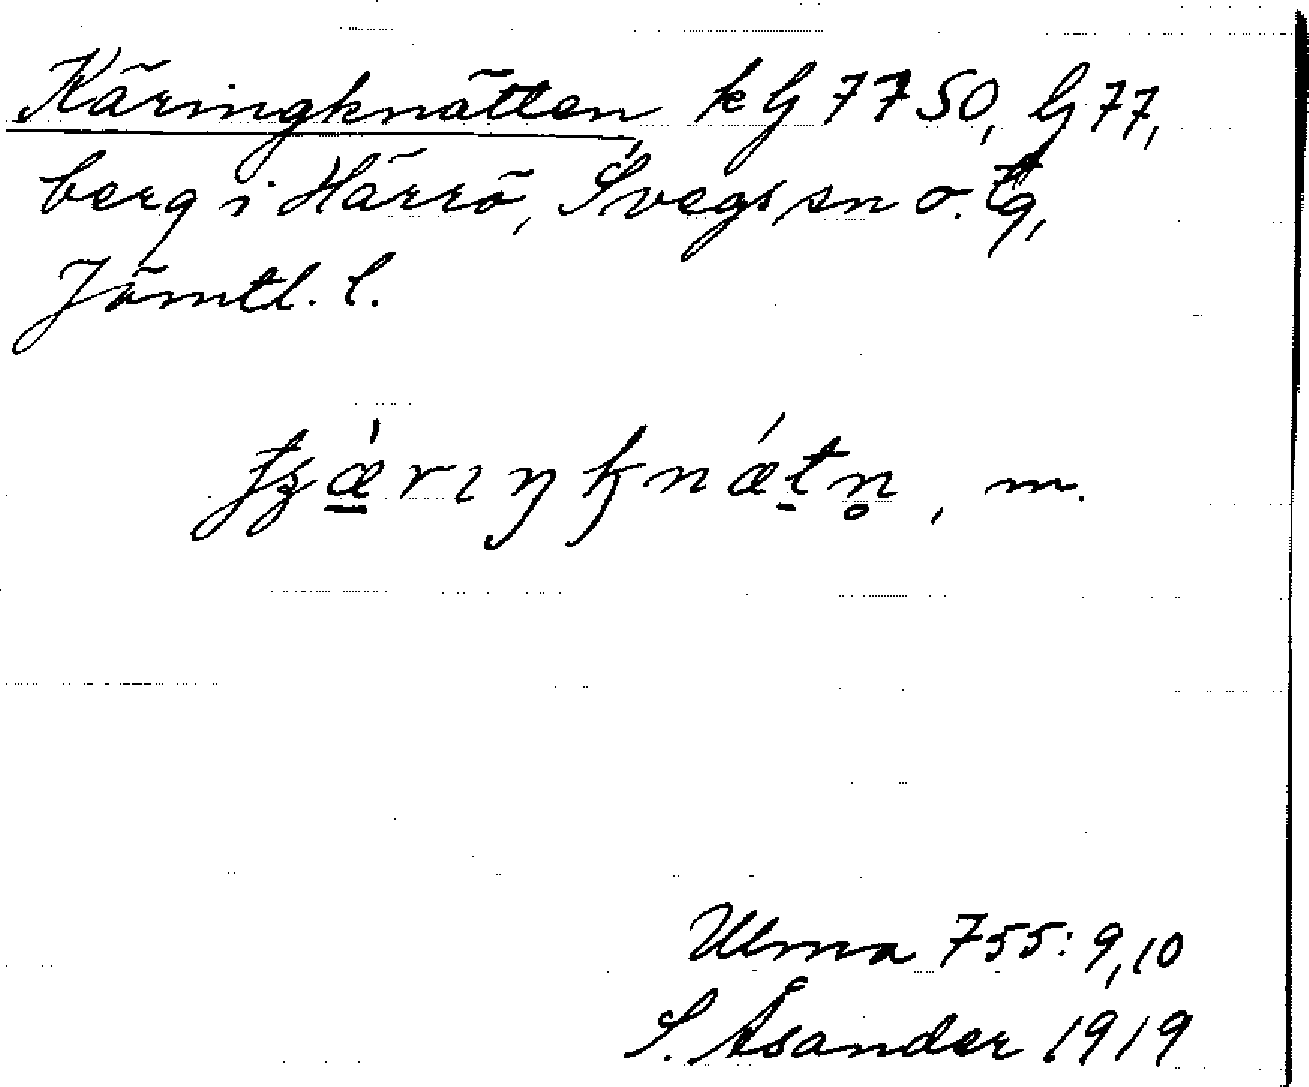 Käringknätten, kG 7750, G 77,
berg i Härrö, Svegs sn o. tg,
Jämtl. l.
tʒæ̀rıŋknǽtn̥, m.
Ulma 755: 9,10
S. Åsander 1919